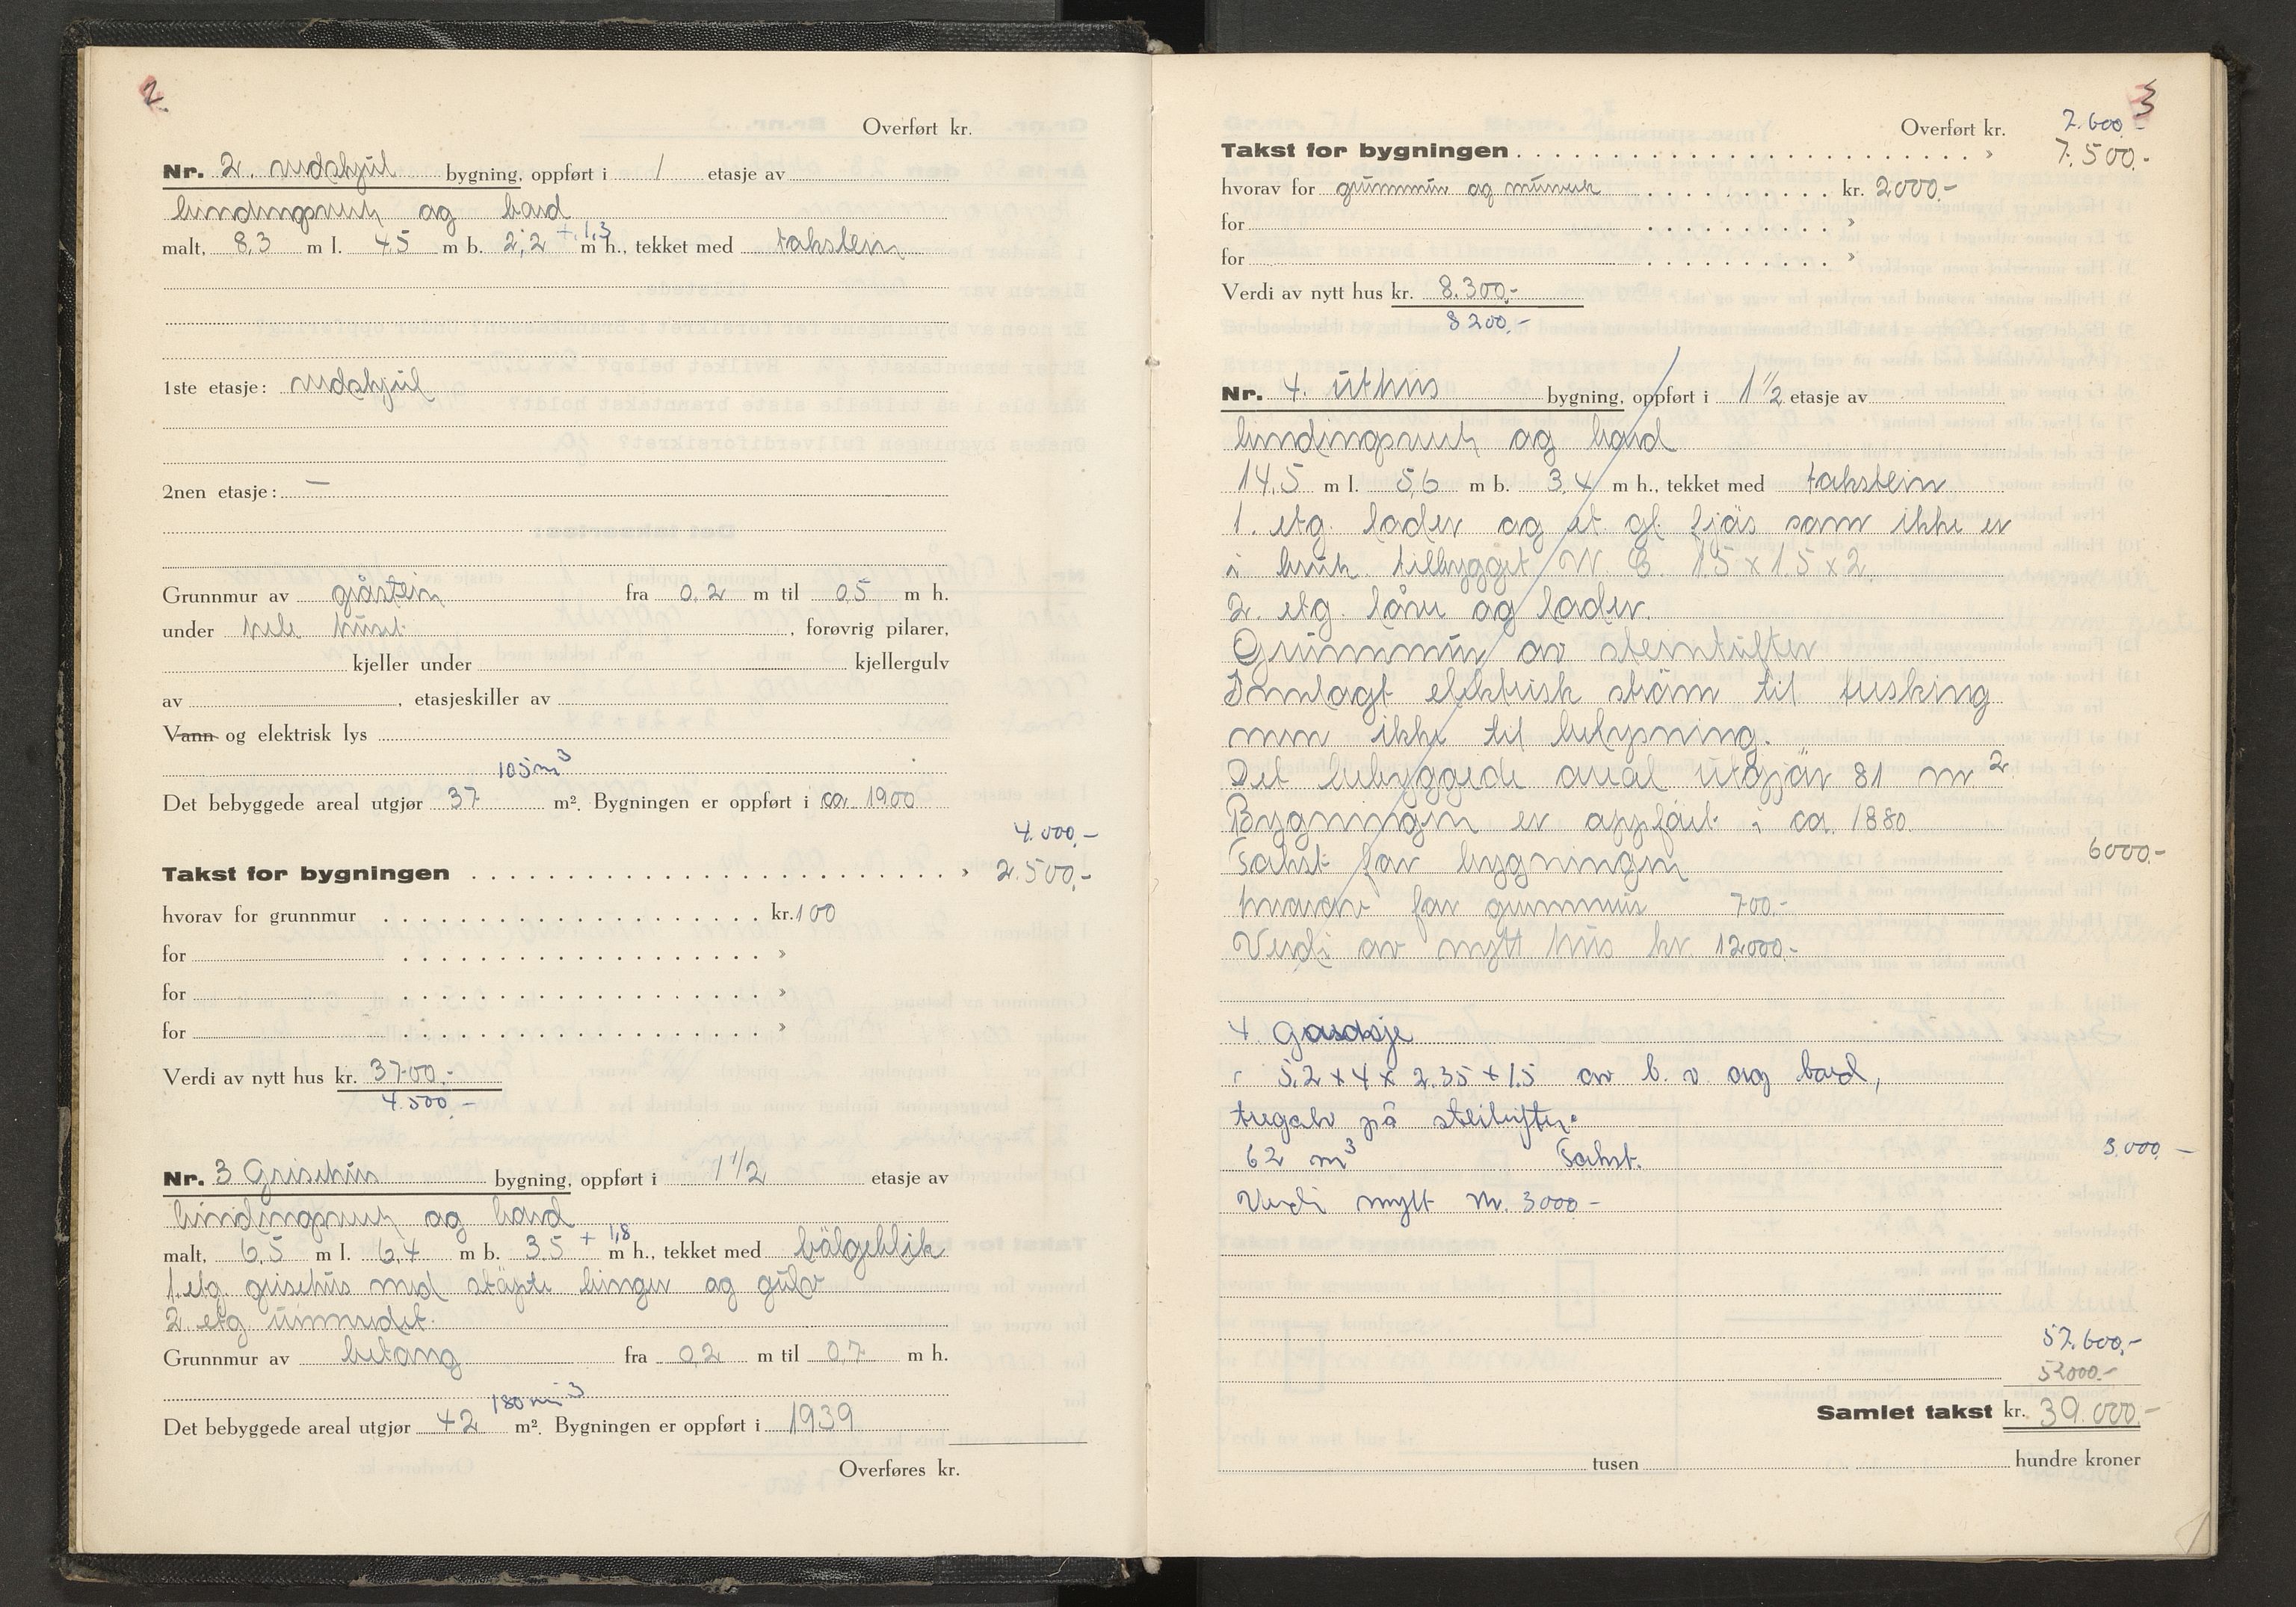 2.
Overført kr.
Nr. 2. vedskjul bygning, oppført i 1 etasje av
bindingsverk og bord
malt, 8,3 m l. 4,5 m b. 2,2 + 1,3 m h., tekket med takstein
1ste etasje: vedskjul
2nen etasje: —
Grunnmur av gråstein fra 0,2 m til 0,5 m h.
under hele huset , forøvrig pilarer,
kjeller under kjellergulv
av , etasjeskiller av
Vann og elektrisk lys
105 m³
Det bebyggede areal utgjør 37 m². Bygningen er oppført i ca 1900
4.000,-
Takst for bygningen » 2.500,-
hvorav for grunnmur kr. 100
for »
for »
for »
Verdi av nytt hus kr. 3700,-
4.500,-
Nr. 3 Grisehus bygning, oppført i 1 1/2 etasje av
bindingsverk og bord
malt, 6,5 m l. 6,4 m b. 3,5 + 1,8 m h., tekket med bølgeblik
1. etg. grisehus med støpte binger og gulv
2 etg uinnredet.
Grunnmur av betong fra 0,2 m til 0,7 m h.
180 m³
Det bebyggede areal utgjør 42 m². Bygningen er oppført i 1939
Overføres kr.
3
Overført kr. 7.600,-
Takst for bygningen » 7.500,-
hvorav for grunnmur og murverk kr. 2000,-
for »
for »
Verdi av nytt hus kr. 8.300,-
8200,-
Nr. 4. uthus bygning, oppført i 1 1/2 etasje av
bindingsverk og bord
14,5 m l. 5,6 m b. 3,4 m h., tekket med takstein
1. etg. lader og et gl. fjøs som ikke er
i bruk. tilbygget W. C. 1,5 x 1,5 x 2
2. etg. låve og lader.
Grunnmur av steintufter
Innlagt elektrisk strøm til tresking
men ikke til belysning.
Det bebyggede areal utgjør 81 m²
Bygningen er oppført i ca. 1880.
Takst for bygningen 6000,-
hvorav for grunnmur 700,-
Verdi av nytt hus kr. 12000,-
4 Garasje
5,2 x 4 x 2,35 + 1,5 av b. v og bord,
tregolv på steitufter.
62 m³ Takst. 3.000,-
Verdi nytt kr. 3000-
57.600,-
52000,-
Samlet takst kr. 39.000,-
tusen hundre kroner